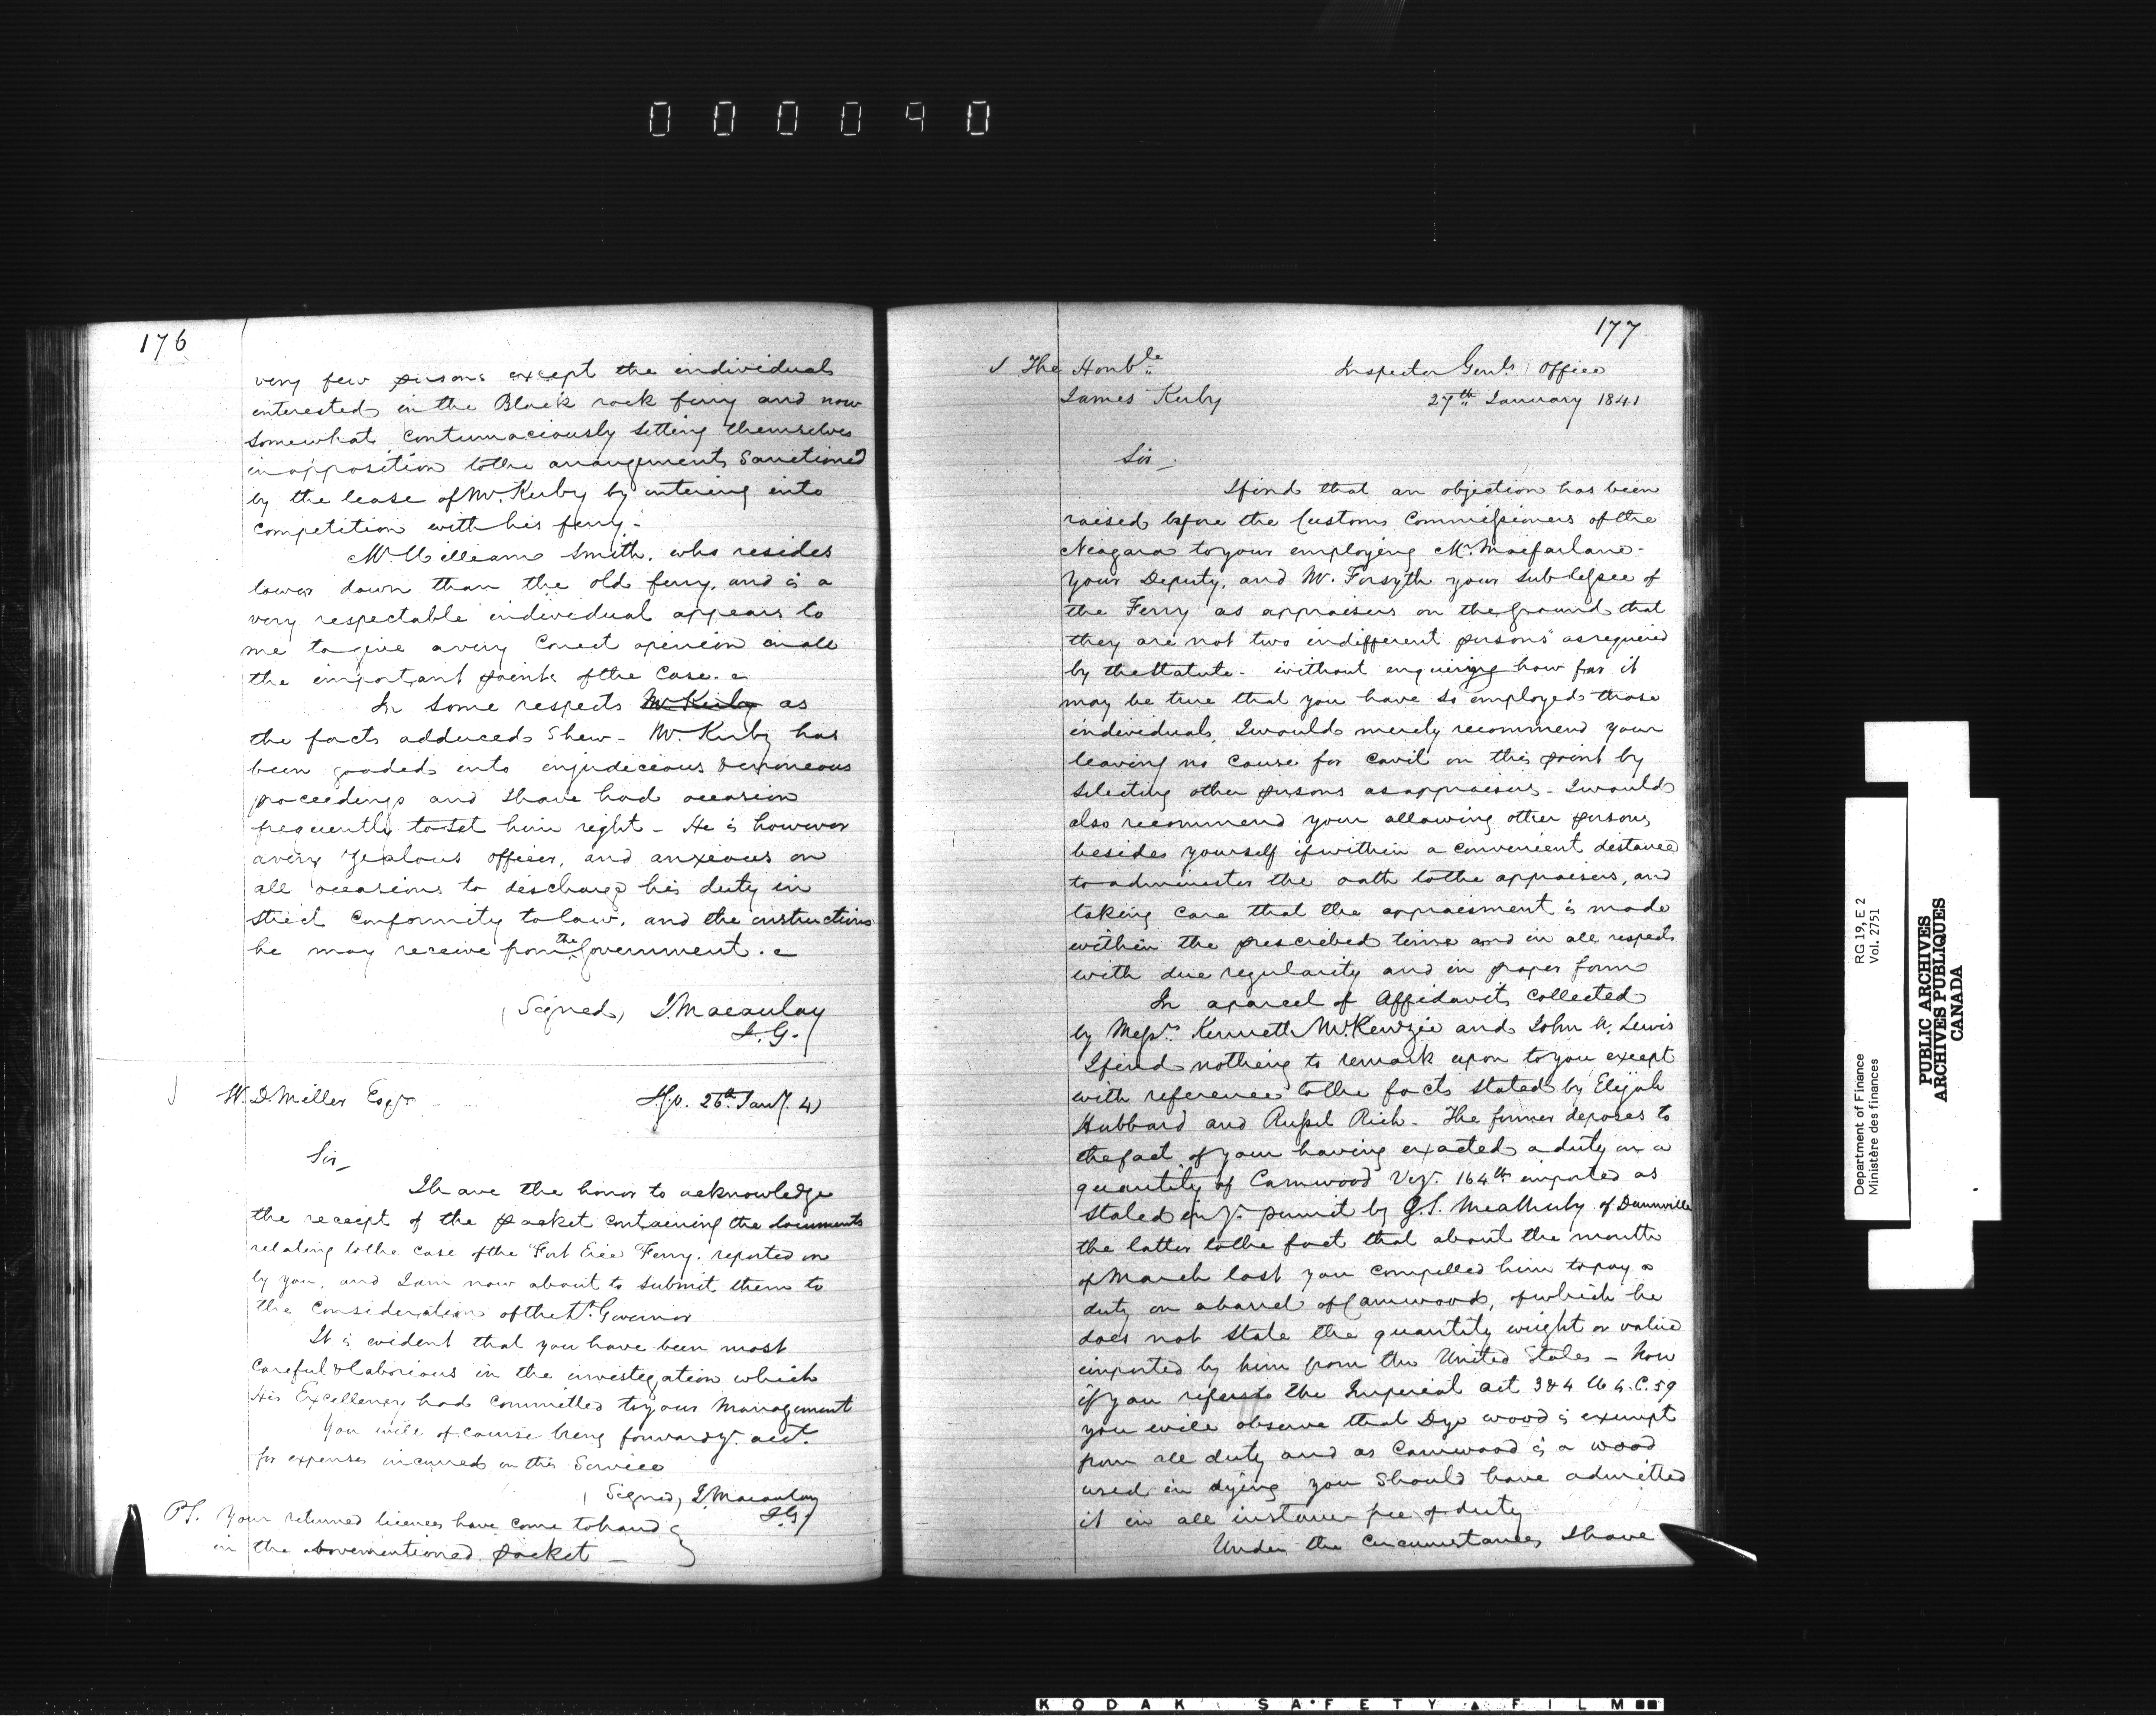 000090
176
very few persons except the individuals
interested in the Black rock ferry and now
somewhat contumaciously setting themselves
in opposition to the arrangements Sanctioned
by the lease of Mr. Kerby by entering into
competition with his ferry.
Mr. William Smith, who resides
lower down than the old ferry, and is a
very respectable individual appears to
me to give a very correct opinion in all
the important points of the Case.
In some respects Mr Kerby as
the facts adduced Shew - Mr. Kerby has
been goaded into injudicious & erroneous
proceedings and I have had occasion
frequently to set him right - He is however
a very zealous officer, and anxious on
all occasions to discharge his duty in
strict conformity to law, and the instructions
he may receive from the Government.
(Signed) J. Macaulay
I. G.
W. D. Miller Esqr
I.G.O. 26th Jany. 41
Sir
I have the honor to acknowledge
the receipt of the packet containing the documents
relating to the case of the Fort Erie Ferry, reported on
by you, and I am now about to submit them to
the Consideration of the Lt. Governor
It is evident that you have been most
careful & laborious in the investigation which
His Excellency had Committed to your Management
You will of course bring forward yr. acct.
for expenses incurred on this Service
(Signed) J. Macaulay
I.G.
P.S. Your returned licences have come to hand
in the abovementioned packet -
177
The Honble
James Kerby
Inspector Genls Office
27th January 1841
Sir
I find that an objection has been
raised before the Customs Commissioners of the
Niagara to your employing Mr. Macfarlane
your Deputy, and Mr. Forsyth your Sub lessee of
the Ferry as appraisers on the ground that
they are not "two indifferent persons" as required
by the Statute - without enquiring how far it
may be true that you have so employed those
individuals, I would merely recommend your
leaving no cause for cavil on this point by
Selecting other persons as appraisers - I would
also recommend your allowing other persons
besides yourself if within a convenient distance
to administer the oath to the appraisers, and
taking care that the appraisment is made
within the prescribed time and in all respects
with due regularity and in proper form
In a parcel of Affidavits collected
by Messrs. Kenneth McKenzie and John W. Lewis
I find nothing to remark upon to you except
with reference to the facts stated by Elijah
Hubbard and Russel Rich - The former deposes to
the fact of your having exacted a duty on a
quantity of Camwood Viz. 164 lb imported as
stated in yr. permit by G. S. of Dunnville
the latter to the fact that about the month
of March last you compelled him to pay a
duty on a barrel of Camwood, of which he
does not state the quantity weight or value
imported by him from the United States - Now
if you refer to the Imperial act 3 & 4 W 4. C. 59
you will observe that Dye wood is exempt
from all duty and as Camwood is a wood
used in dying you should have admitted
it in all instances free of duty
Under the Circumstances I have
Department of Finance RG 19, E 2
Ministère des finances Vol. 2751
PUBLIC ARCHIVES
ARCHIVES PUBLIQUES
CANADA
KODAK SAFETY FILM